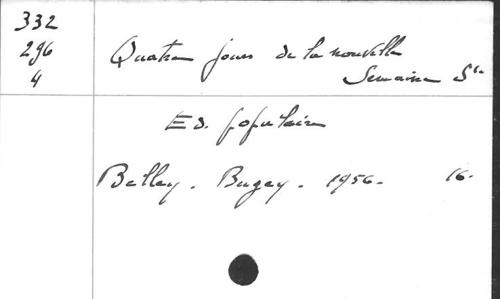 332
296
4
Quatre jours de la nouvelle
Semaine Ste
Ed. populaire
Belley. Bugey. 1956. 16.